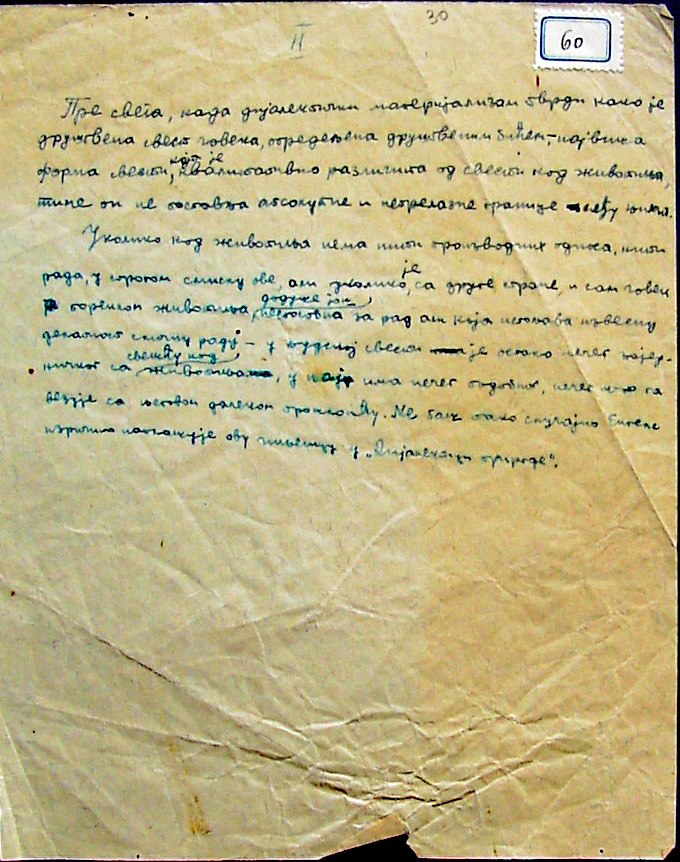 30
II
60
Пре свега, када дијалектички материјализам тврди како је
друштвена свест човека, опредељена друштвеним бићем, највиша
форма свести, која је квалитативно различита од свести код животиња,
тиме он не поставља апсолутне и непрелазне границе међу њима.
Уколико код животиња нема нити производних односа, нити
рада, у строгом смислу ове, али уколико је, са друге стране, и сам човек
пореклом животиња, додуше још неспособна за рад али која испољава извесну
делатност сличну раду – у људској свести је остало нечег зајед-
ничког са свешћу код животиња, у њој има нечег подобног, нечег што га
везује са његовом далеком прошлошћу. Не баш тако случајно Енгелс
изричито наглашује ову чињеницу у „Дијалектици природе“.